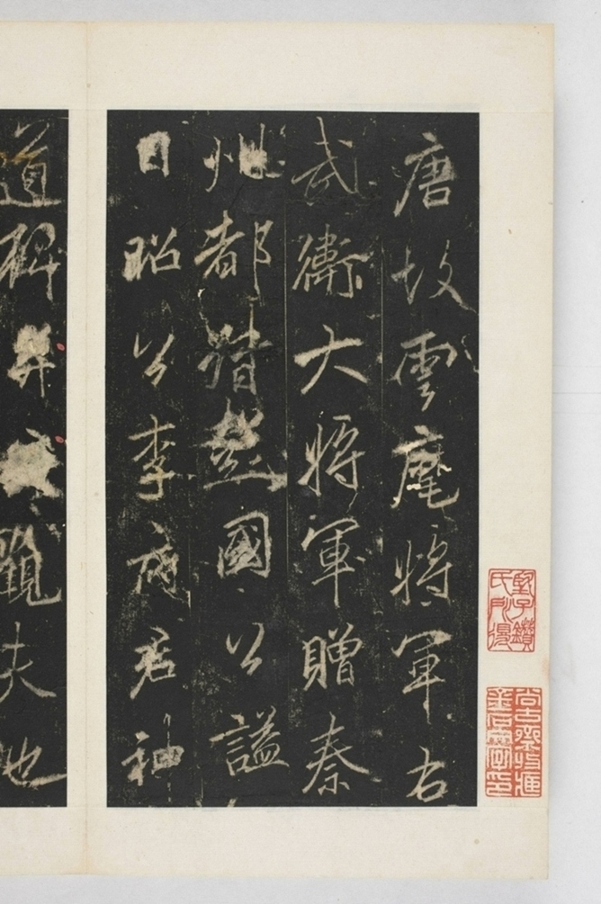 唐故雲麾將軍右
武衛大將軍贈秦
州都督國公謚
曰昭公李府君神
道碑并觀夫